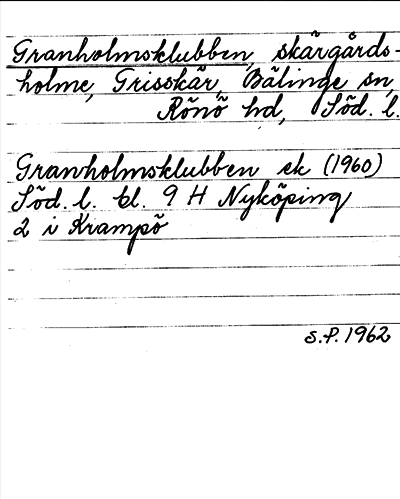 Granholmsklubben, skärgårds-
holme, Grisskär, Bälinge sn,
Rönö hd, Söd. l.
Granholmsklubben ek (1960)
Söd. l. bl. 9 H Nyköping
2 i Krampö
S.P. 1962